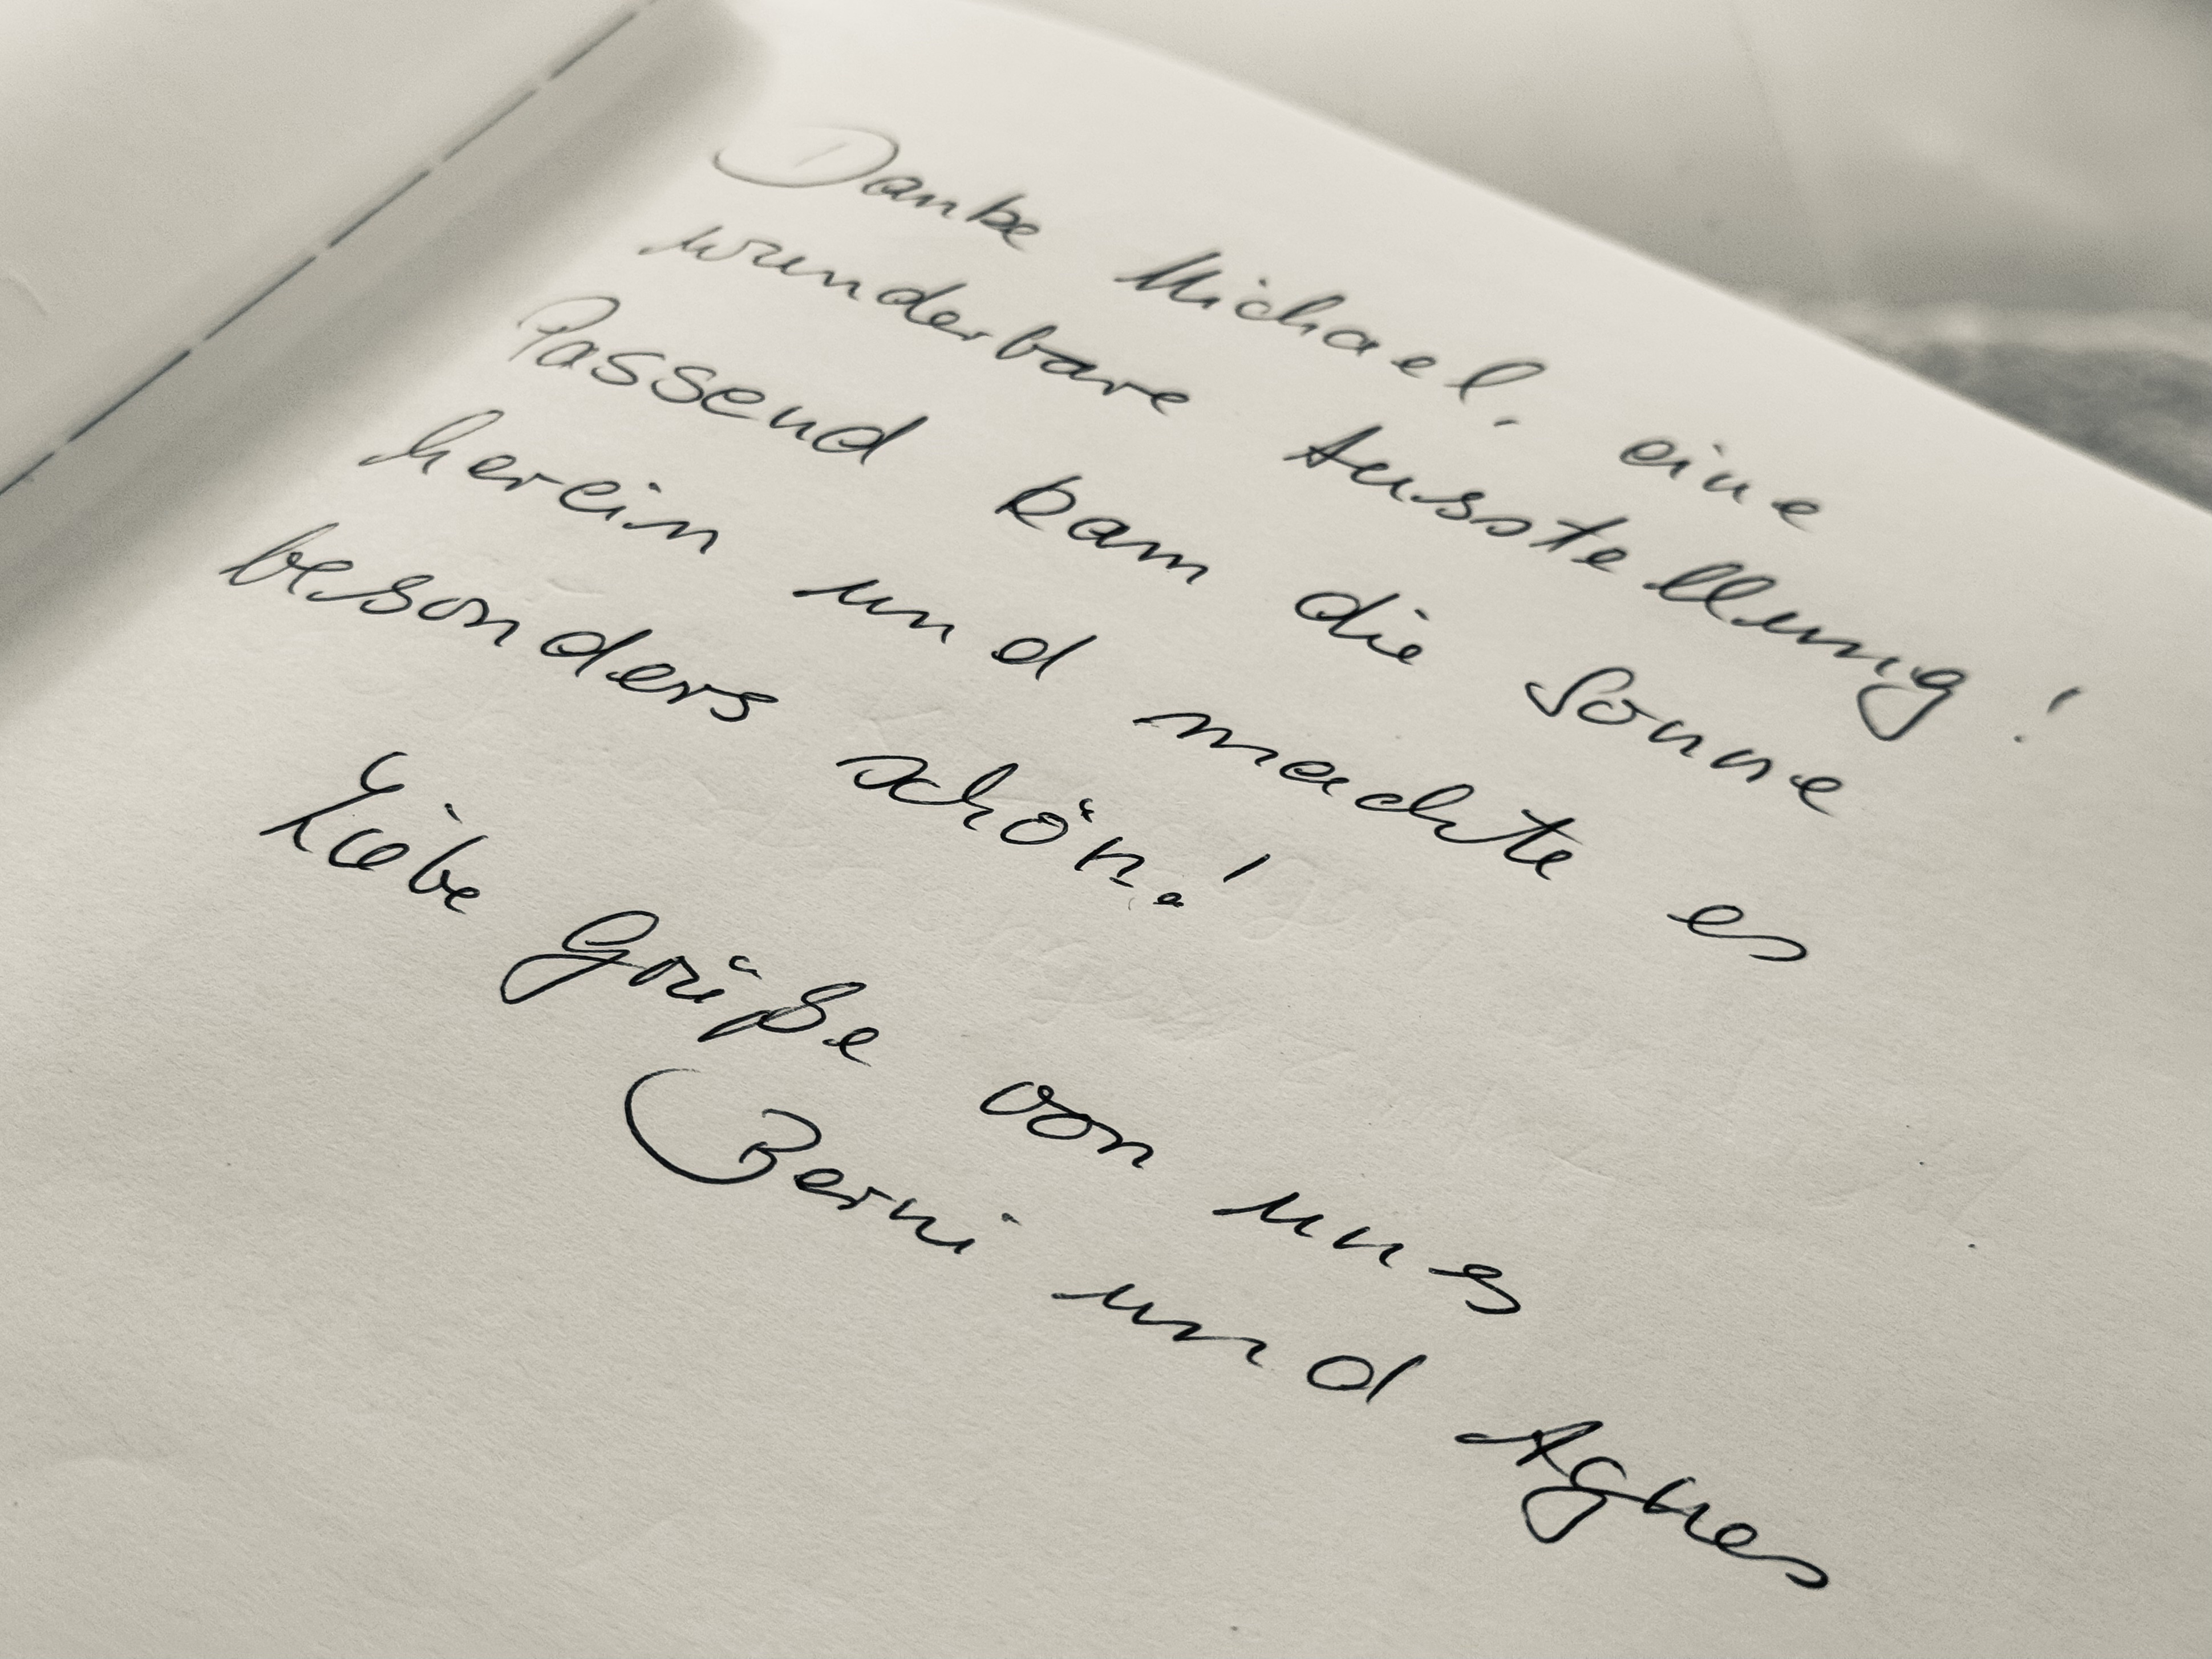 Danke Michael, eine
wunderbare Ausstellung!
Passend kam die Sonne
herein und machte es
besonders schön!
Liebe Grüße von uns
Berni und Agnes